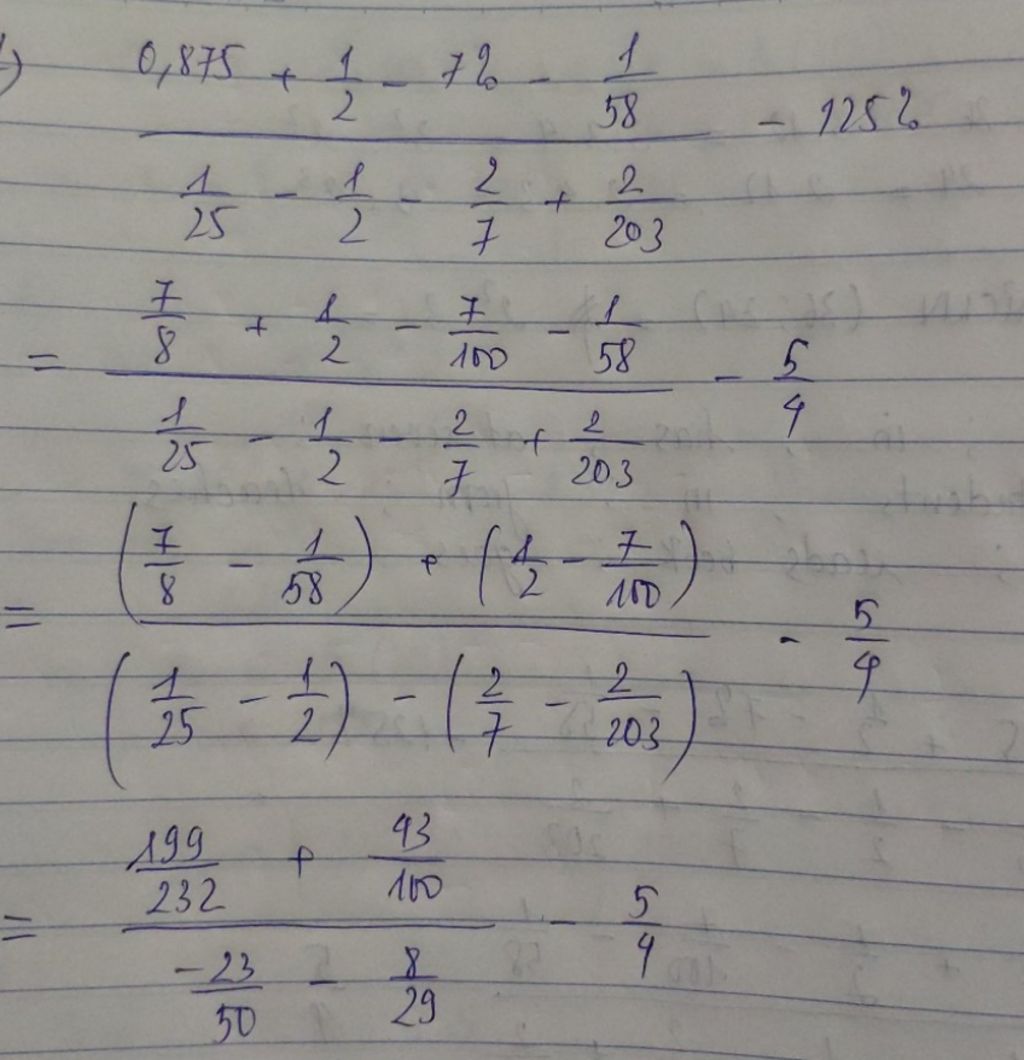 0,875 + 1/2 - 7% - 1/58
- 125%
1/25 - 1/2 - 2/7 + 2/203
= 7/8 + 1/2 - 7/100 - 1/58
- 5/4
1/25 - 1/2 - 2/7 + 2/203
= (7/8 - 1/58) + (1/2 - 7/100)
- 5/4
(1/25 - 1/2) - (2/7 - 2/203)
= 199/232 + 43/100
- 5/4
-23/50 - 8/29